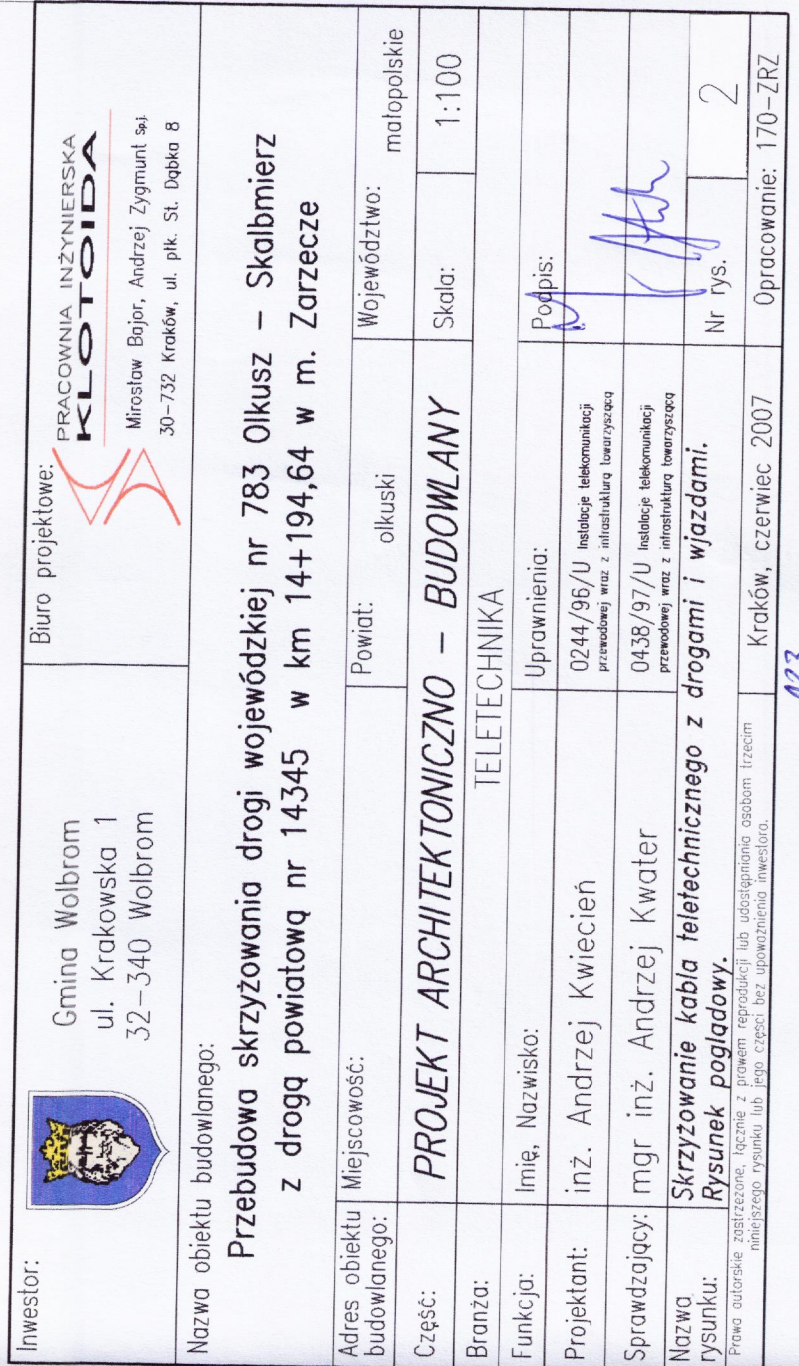 Inwestor:
Gmina Wolbrom
ul. Krakowska 1
32-340 Wolbrom
Biuro projektowe:
PRACOWNIA INŻYNIERSKA
KLOTOIDA
Mirosław Bajor, Andrzej Zygmunt Sp.j.
30-732 Kraków, ul. płk. St. Dąbka 8
Nazwa obiektu budowlanego:
Przebudowa skrzyżowania drogi wojewódzkiej nr 783 Olkusz – Skalbmierz
z drogą powiatową nr 14345 w km 14+194,64 w m. Zarzecze
Adres obiektu
budowlanego:
Miejscowość:
Powiat:
olkuski
Województwo:
małopolskie
Część:
PROJEKT ARCHITEKTONICZNO – BUDOWLANY
Skala:
1:100
Branża:
TELETECHNIKA
Funkcja:
Imię, Nazwisko:
Uprawnienia:
Podpis:
Projektant:
inż. Andrzej Kwiecień
0244/96/U Instalacje telekomunikacji
przewodowej wraz z infrastrukturą towarzyszącą
Sprawdzający:
mgr inż. Andrzej Kwater
0438/97/U Instalacje telekomunikacji
przewodowej wraz z infrastrukturą towarzyszącą
Nazwa
rysunku:
Skrzyżowanie kabla teletechnicznego z drogami i wjazdami.
Rysunek poglądowy.
Nr rys.
2
Prawa autorskie zastrzeżone, łącznie z prawem reprodukcji lub udostępniania osobom trzecim
niniejszego rysunku lub jego części bez upoważnienia inwestora.
Kraków, czerwiec 2007
Opracowanie: 170-ZRZ